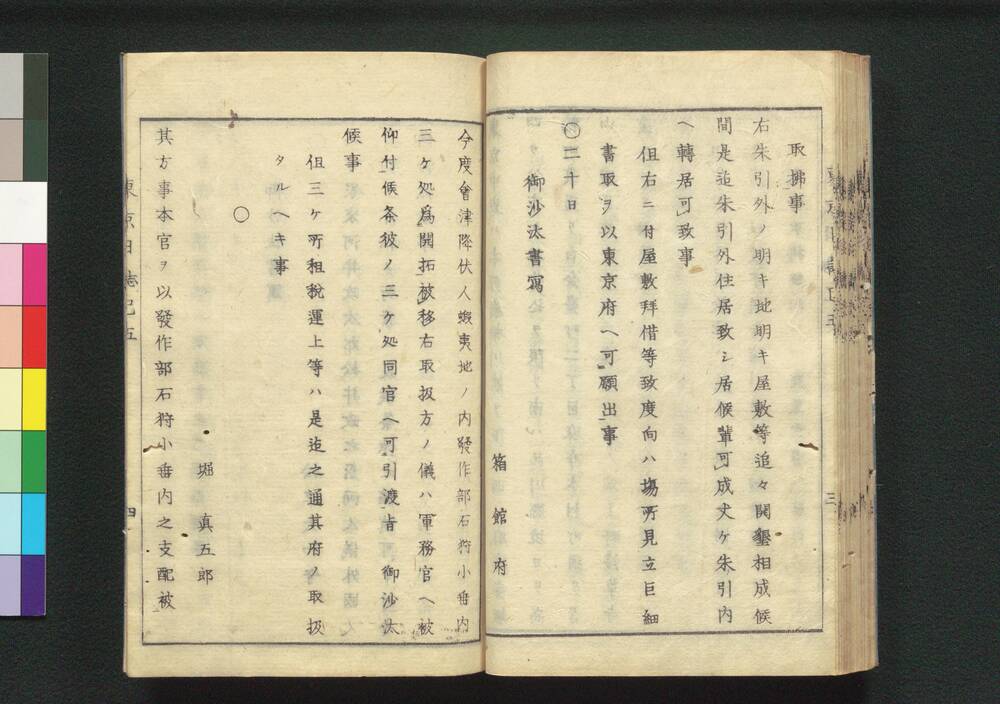 取拂事
右朱引外ノ明キ地明キ屋敷等追々開墾相成候
間是迄朱引外住居致シ居候輩可成丈ケ朱引内
ヘ轉居可致事
但右ニ付屋敷拜借等致度向ハ塲所見立巨細
書取ヲ以東京府ヘ可願出事
〇二十日
御沙汰書寫
箱館府
今度會津降伏人蝦夷地ノ内發作部石狩小垂内
三ケ処爲開拓被移右取扱方ノ儀ハ軍務官ヘ被
仰付候条彼ノ三ケ処同官ヘ可引渡旨御沙汰
候事
但三ケ所租税運上等ハ是迄之通其府ノ取扱
タルヘキ事
〇
堀真五郎
其方事本官ヲ以發作部石狩小垂内之支配被
東京日誌己五
三
四